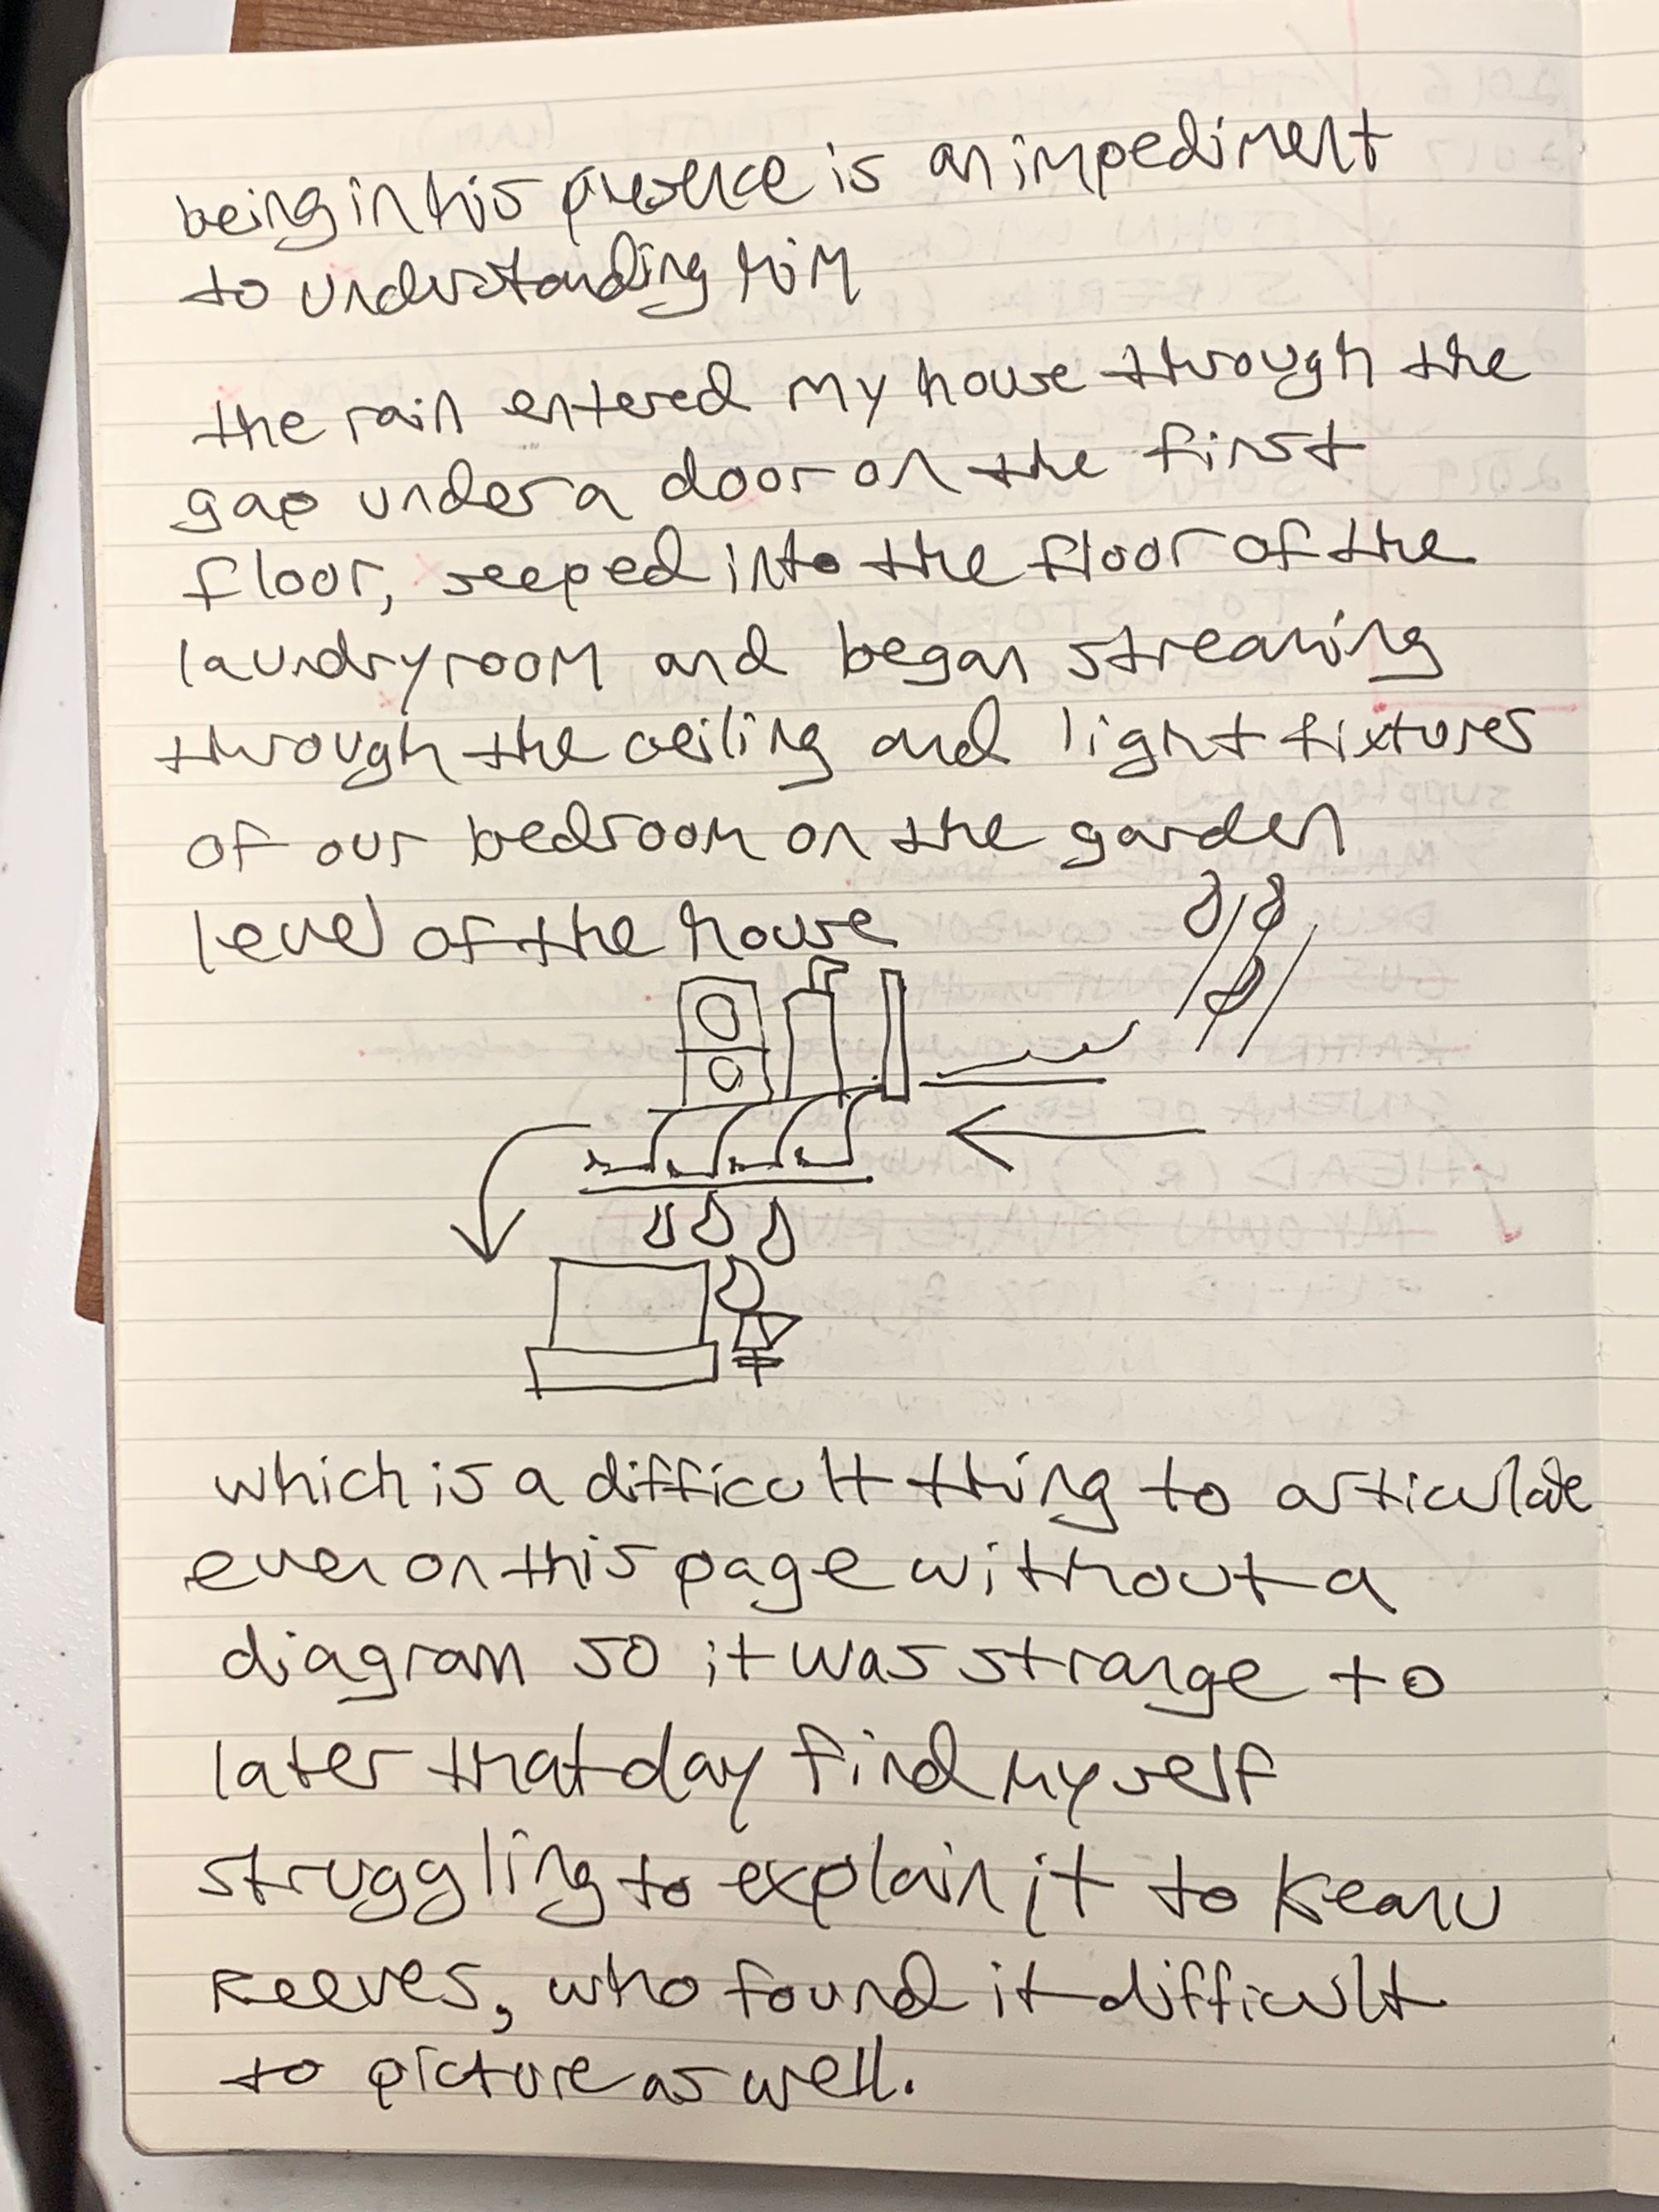 being in his presence is an impediment
to understanding him
the rain entered my house through the
gap under a door on the first
floor, seeped into the floor of the
laundry room and began streaming
through the ceiling and light fixtures
of our bedroom on the garden
level of the house
which is a difficult thing to articulate
even on this page without a
diagram so it was strange to
later that day find myself
struggling to explain it to Keanu
Reeves, who found it difficult
to picture as well.